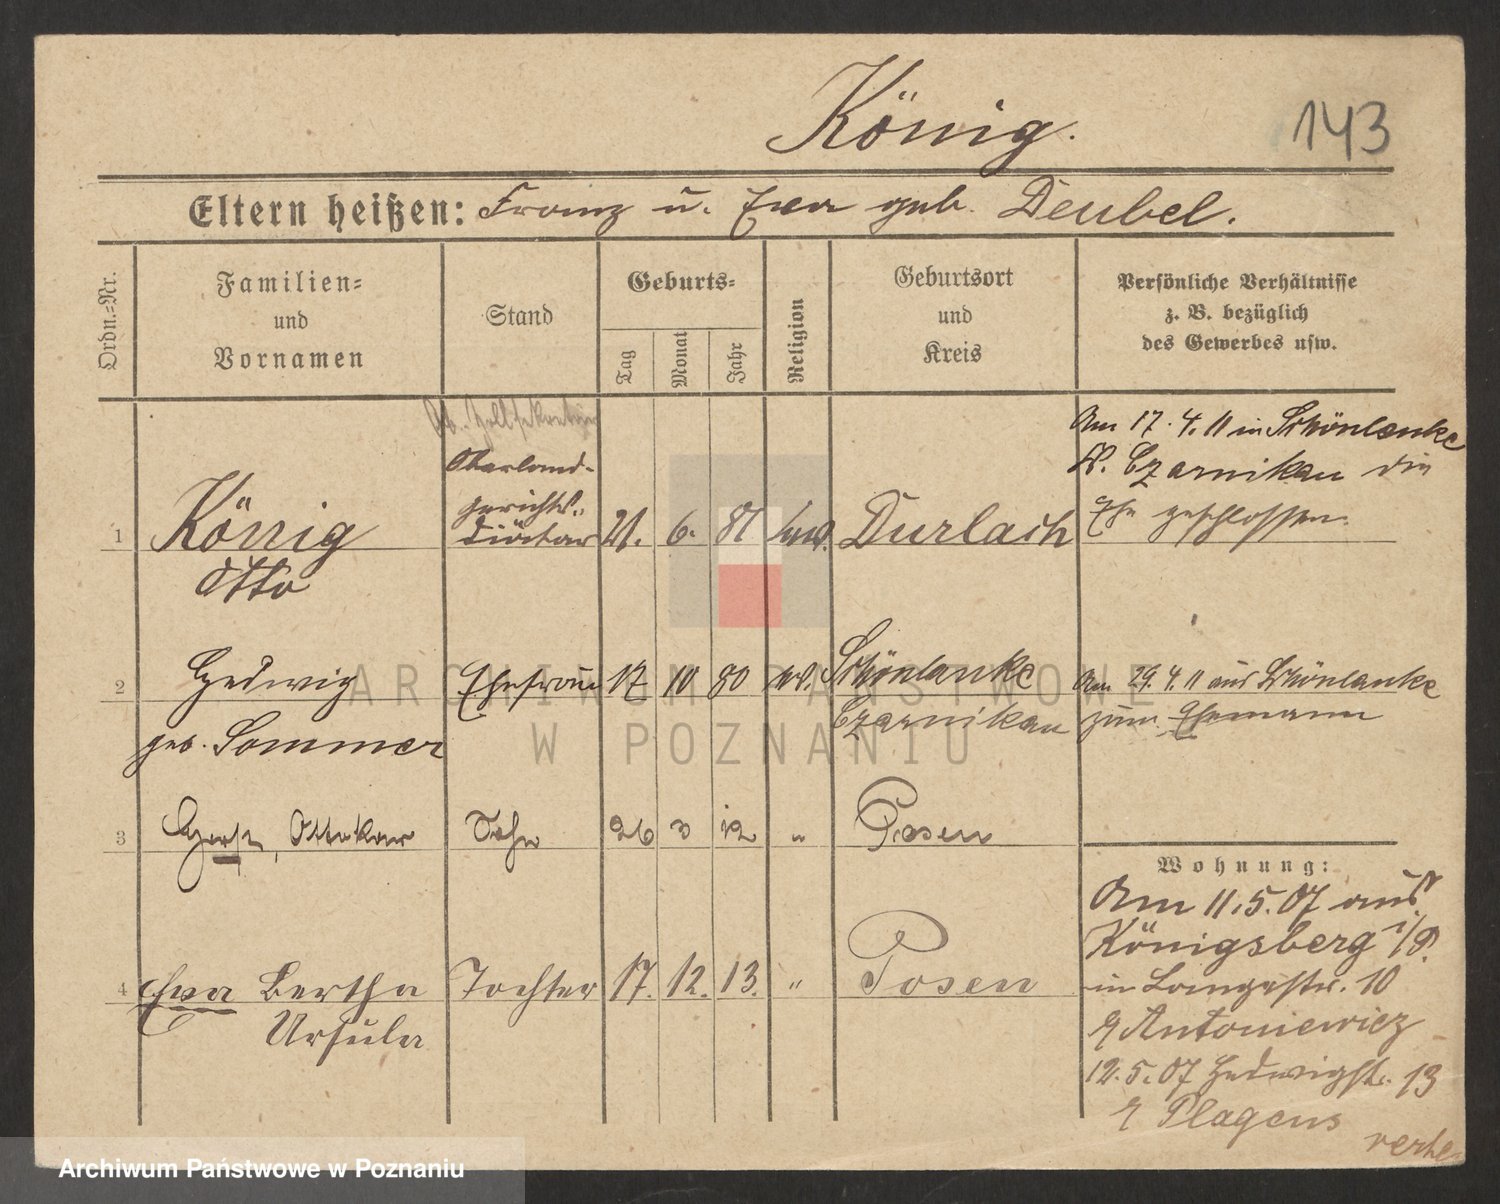 König.
143
Eltern heißen: Franz u. Eva geb. Deubel.
Ordn.=Nr.
Familien=
und
Vornamen
Stand
Geburts=
Tag
Monat
Jahr
Religion
Geburtsort
und
Kreis
Persönliche Verhältnisse
z. B. bezüglich
des Gewerbes usw.
1
König
Otto
Oberland-
gerichts-
Diätar
21. 6. 81
Durlach
Am 17. 4. 11 in Schönlanke
K. Czarnikau die
Ehe geschlossen.
2
Hedwig
geb. Sommer
Ehefrau
17 10 80
Schönlanke
Czarnikau
Am 29. 4. 11 aus Schönlanke
zum Ehemann
3
Horst, Ottokar
Sohn
26 3 12 "
Posen
4
Eva Bertha
Ursula
Tochter
17. 12. 13. "
Posen
Wohnung:
Am 11.5.07 aus
Königsberg i/P.
in Langestr. 10
Antoniewicz
12.5.07 Hedwigstr. 13
Plagens
ARCHIWUM PAŃSTWOWE
W POZNANIU
Archiwum Państwowe w Poznaniu